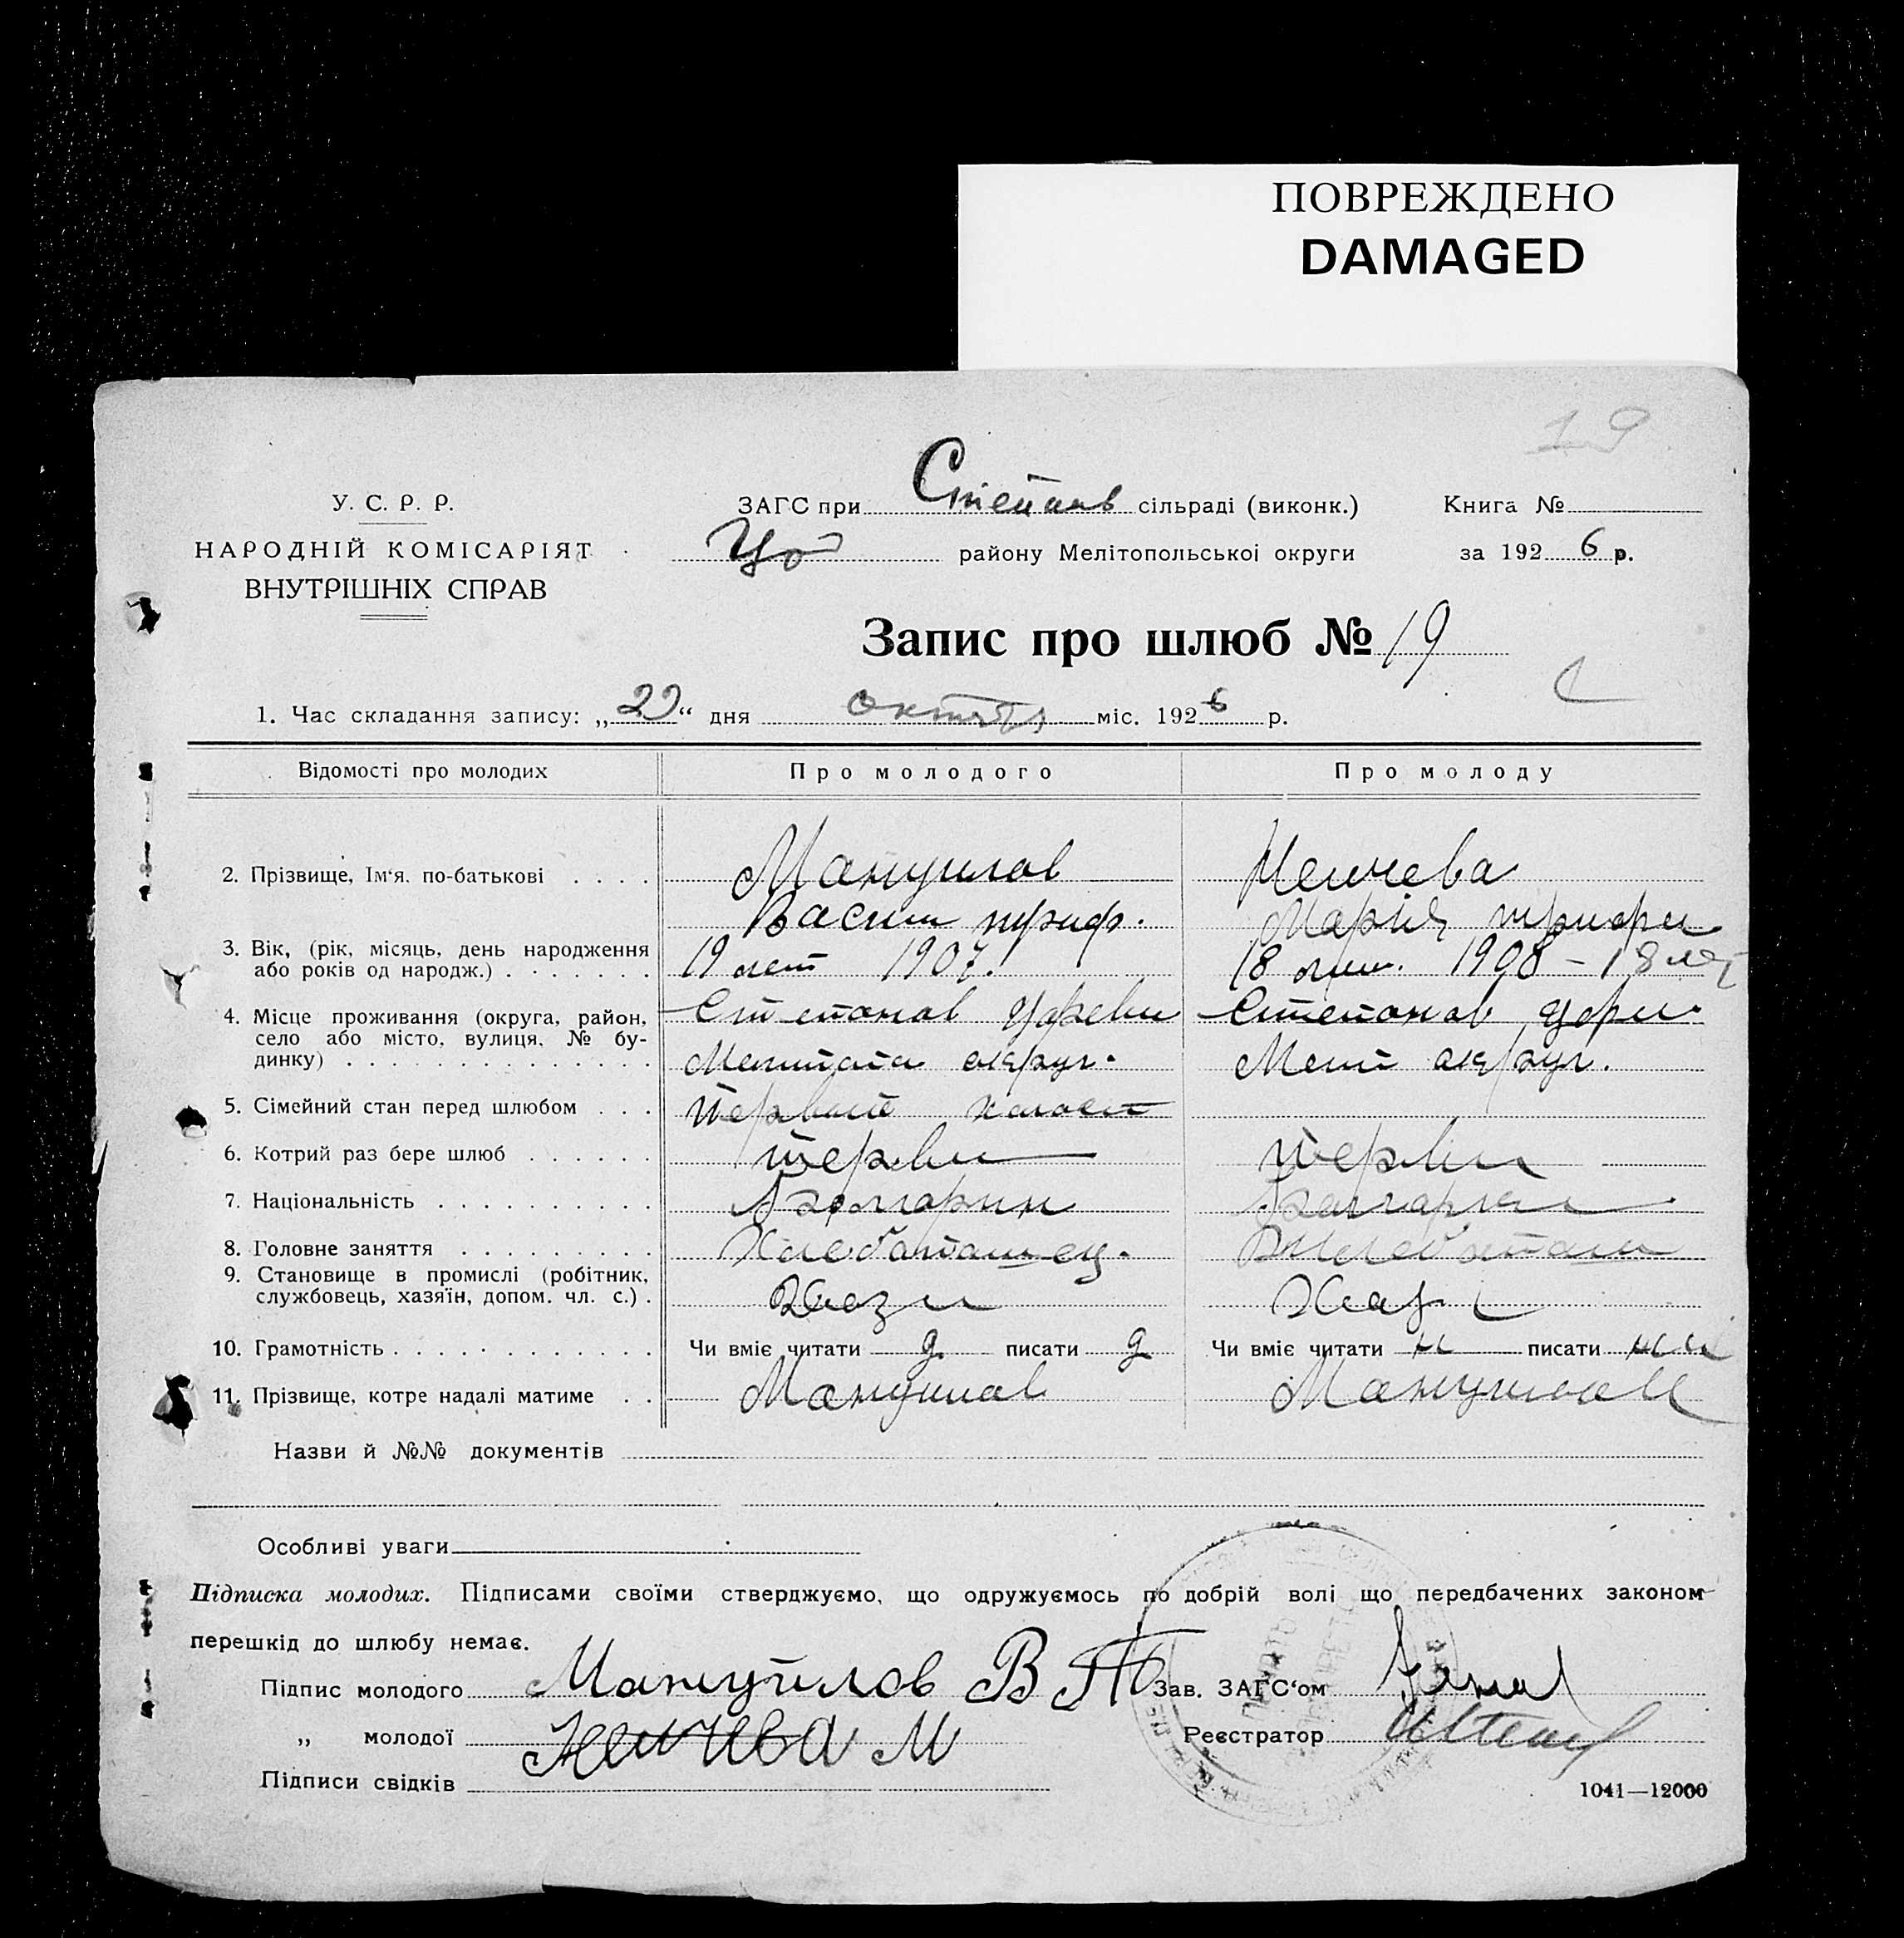 ПОВРЕЖДЕНО
DAMAGED
19
У. С. Р. Р.
НАРОДНІЙ КОМІСАРІЯТ
ВНУТРІШНІХ СПРАВ
ЗАГС при Степанов сільраді (виконк.)
Книга №
району Мелітопольської округи
за 1926 р.
Запис про шлюб № 19
1. Час складання запису: „22“ дня октября міс. 1926 р.
Відомості про молодих
Про молодого
Про молоду
2. Прізвище, Ім'я, по-батькові
Мануилов
Ненчева
Васили
Мария
3. Вік, (рік, місяць, день народження
або років од народж.)
19 лет 1907.
18 лет. 1908 – 18 лет
4. Місце проживання (округа, район,
село або місто, вулиця, № бу-
динку)
Степанов
Степанов
Мелитопол округ.
Мели округ.
5. Сімейний стан перед шлюбом
Первый холост
6. Котрий раз бере шлюб
Перви
Перви
7. Національність
Болгарин
Болгарка
8. Головне заняття
Хлебопашец.
9. Становище в промислі (робітник,
службовець, хазяїн, допом. чл. с.)
Хози
Хаз
10. Грамотність
Чи вміє читати д писати д
Чи вміє читати н писати
11. Прізвище, котре надалі матиме
Мануилов
Мануилов
Назви й №№ документів
Особливі уваги
Підписка молодих. Підписами своїми стверджуємо, що одружуємось по добрій волі що передбачених законом
перешкід до шлюбу немає.
Підпис молодого Мануйлов В Т
Зав. ЗАГС'ом
„ молодої Ненчева М
Реєстратор
Підписи свідків
1041—12000